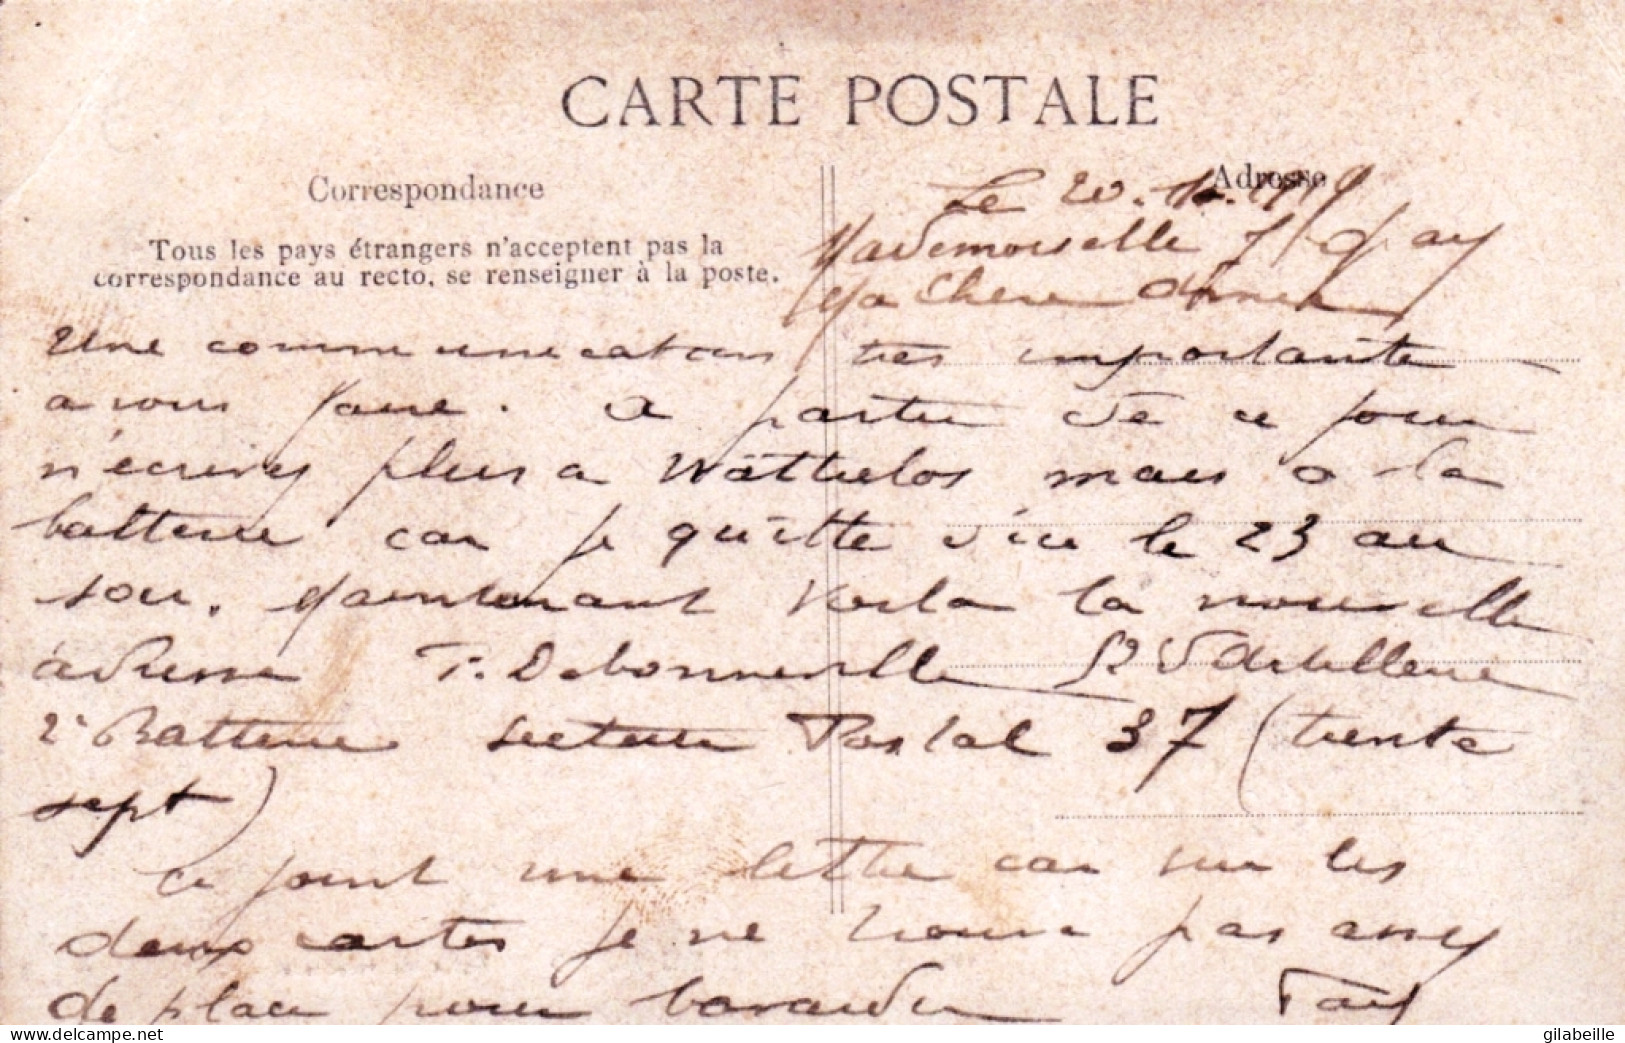 CARTE POSTALE
Correspondance
Adresse
Tous les pays étrangers n'acceptent pas la
correspondance au recto, se renseigner à la poste.
Le 20.
Mademoiselle
Ma Chère
Une communication très importante
a vous faire. a partir de ce jour
n'écrivez plus a Wattrelos mais a la
batterie car je quitte d'ici le 23 au
soir. Maintenant voila la nouvelle
adresse T. Debonneville d'Artillerie
2e Batterie secteur Postal 37 (trente
sept)
ci joint une lettre car sur les
deux cartes je ne trouve pas assez
de place pour bavarder
delcampe.net
gilabeille